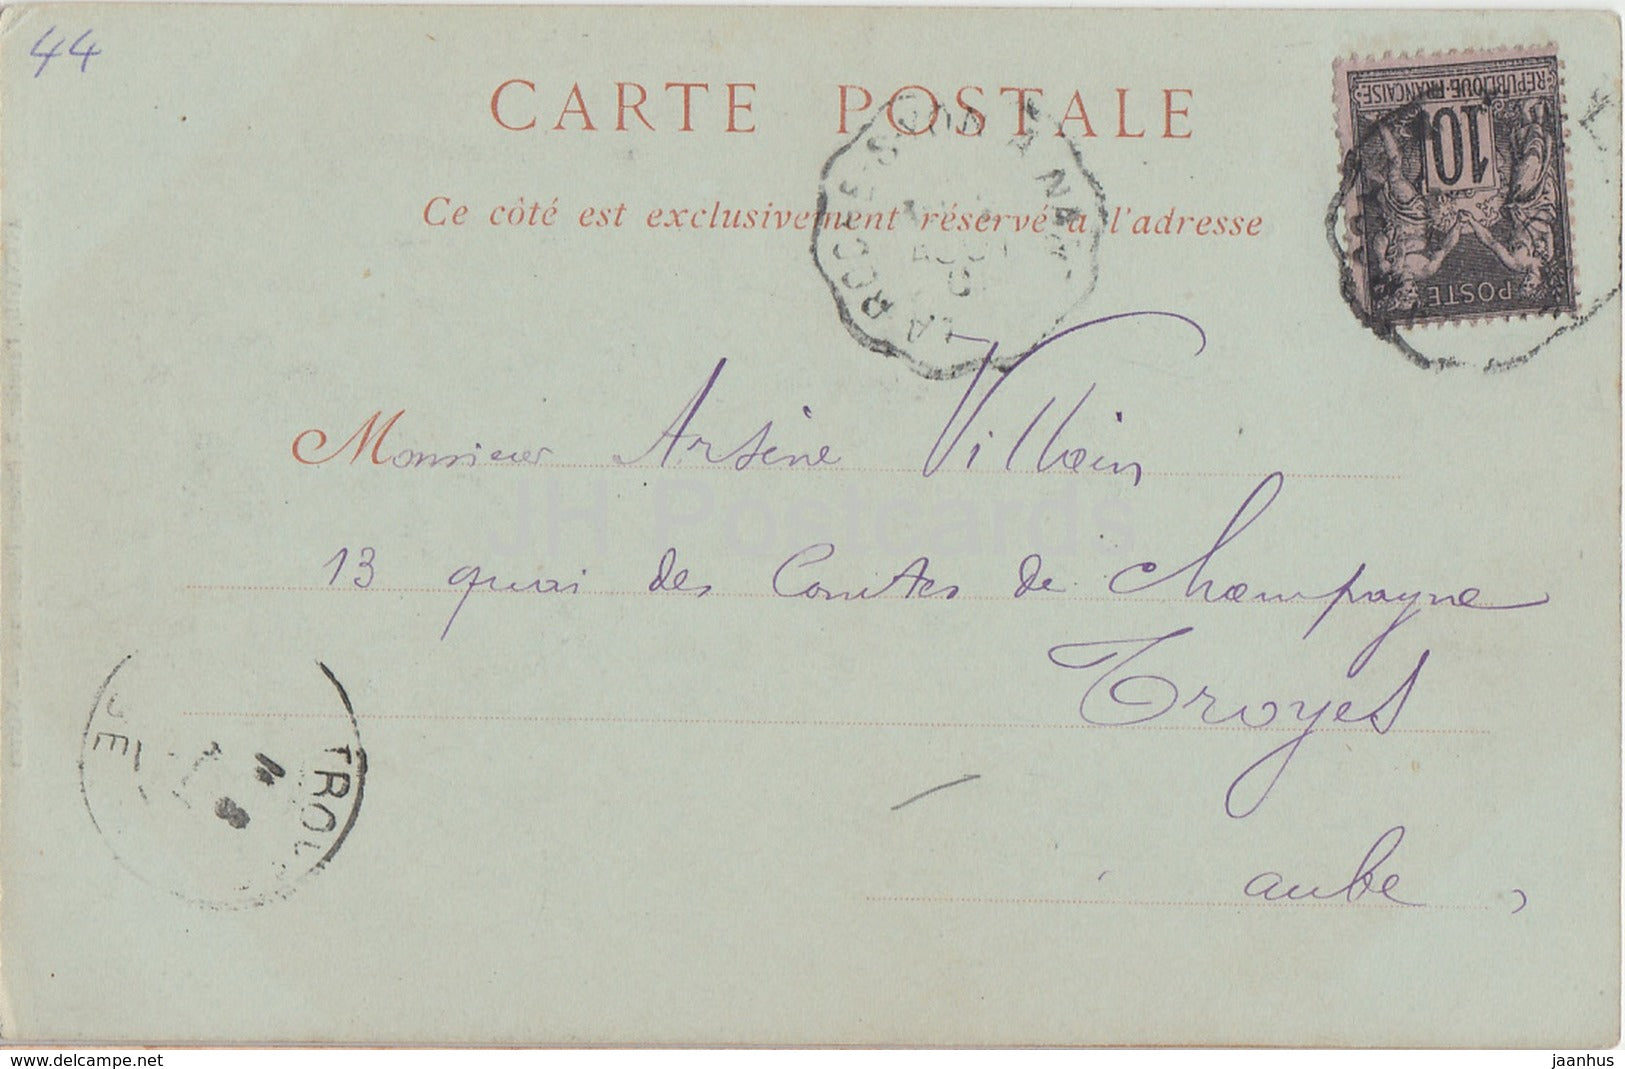 44
CARTE POSTALE
Ce côté est exclusivement réservé à l'adresse
REPUBLIQUE FRANÇAISE
10
POSTE
LA ROCHE-S-YON A
Monsieur Arsène Villain
JH Postcards
13 quai des Comtes de Champagne
Troyes
aube
www.delcampe.net
jaanhus